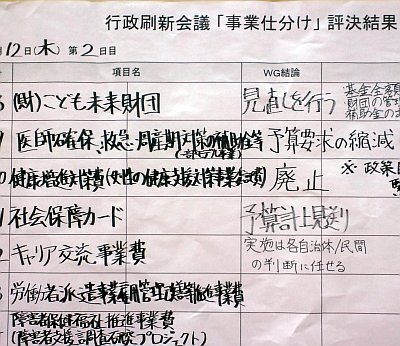 行政刷新会議「事業仕分け」評決結果
月12日(木) 第2日目
項目名 WG結論
(財)こども未来財団 見直しを行う 基金全額
財団の管理
補助金の
9 医師確保、救急・周産期対策の補助金等 予算要求の縮減
(一部モデル事業)
0 健康増進対策費(女性の健康支援対策事業委託費) 廃止 ※政策目
1 社会保障カード 予算計上見送り
2 キャリア交流事業費 実施は各自治体/民間
の判断に任せる
労働者派遣事業雇用管理改善等推進事業費
障害者保健福祉推進事業費
(障害者支援調査研究プロジェクト)